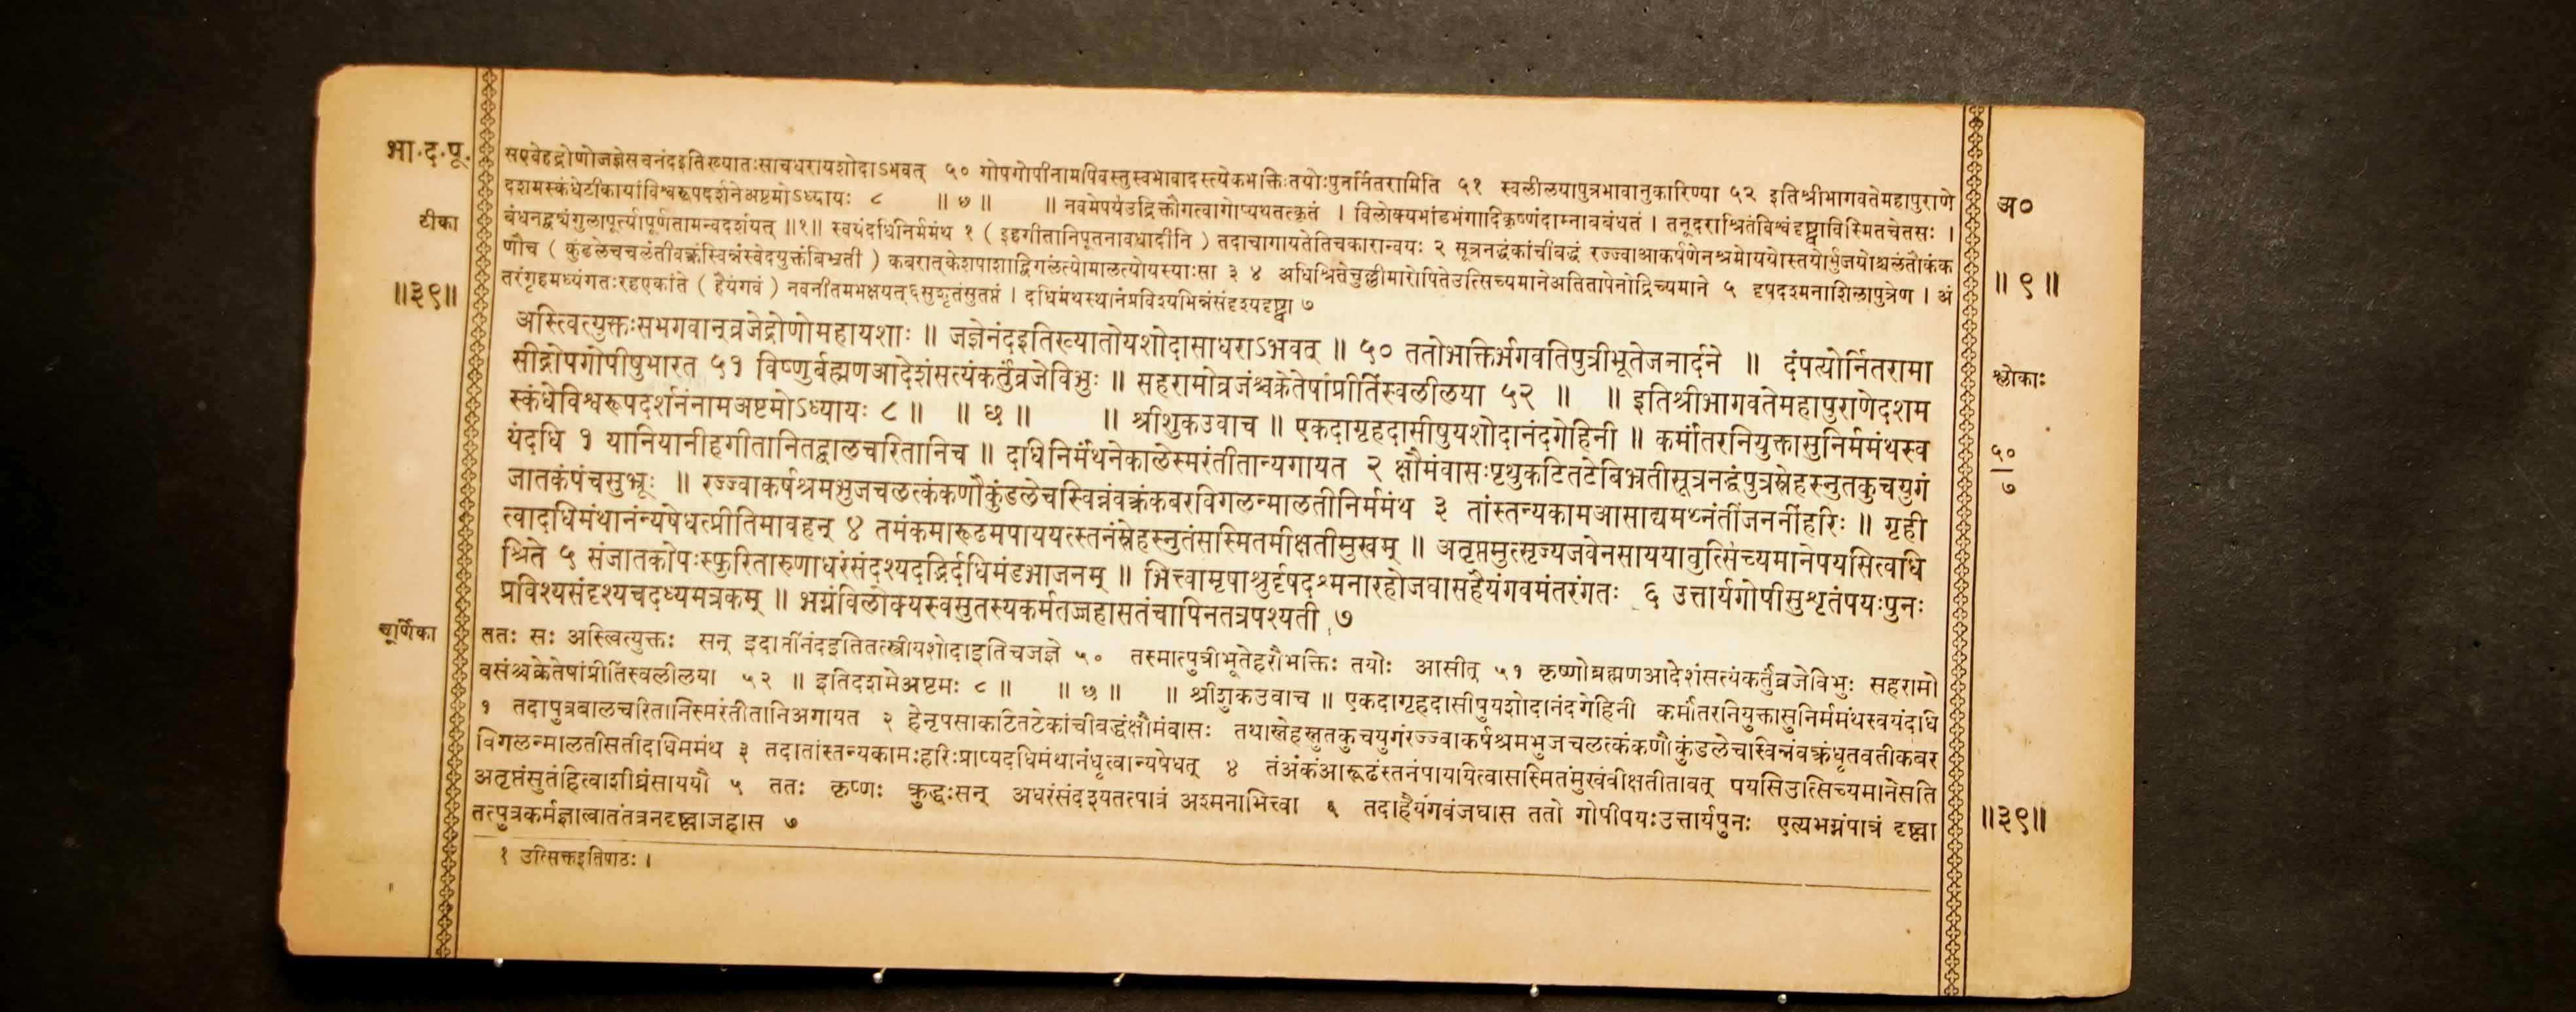 भा.द.पू.
सएवेहद्रोणोजज्ञेसचनंदइतिख्यातःसाचधरायशोदाऽभवत् ५० गोपगोपीनामपिवस्तुस्वभावादस्त्येकभक्तिःतयोःपुनर्नितरामिति ५१ स्वलीलयापुत्रभावानुकारिण्या ५२ इतिश्रीभागवतेमहापुराणे
दशमस्कंधेटीकायांविश्वरूपदर्शनेअष्टमोऽध्यायः ८ ॥ ७ ॥ ॥ नवमेपयउद्रिक्तौगत्वागोप्यथतत्कृतं । विलोक्यभांडभंगादिकृष्णंदाम्नाबबंधतं । तनूदराश्रितंविश्वंदृष्ट्वाविस्मितचेतसः ।
अ०
टीका
बंधनद्व्यंगुलापूर्त्यापूर्णतामन्वदर्शयत् ॥१॥ स्वयंदधिनिर्ममंथ १ ( इहगीतानिपूतनावधादीनि ) तदाचागायतेतिचकारान्वयः २ सूत्रनद्धंकांचीबद्धं रज्ज्वाआकर्षणेनश्रमोययोस्तयोर्भुजयोश्चलंतौकंक
णौच ( कुंडलेचचलंतीवक्त्रंस्विन्नंस्वेदयुक्तंबिभ्रती ) कबरात्केशपाशाद्विगलंत्योमालत्योयस्याःसा ३ ४ अधिश्रितेचुल्लीमारोपितेउत्सिच्यमानेअतितापेनोद्रिच्यमाने ५ दृषदश्मनाशिलापुत्रेण । अं
॥ ९ ॥
॥३९॥
तरंगृहमध्यंगतःरहएकांते ( हैयंगवं ) नवनीतमभक्षयत् ६ सुशृतंसुतप्तं । दधिमंथस्थानंप्रविश्यभिन्नंसंदृश्यदृष्ट्वा ७
अस्त्वित्युक्तःसभगवान्व्रजेद्रोणोमहायशाः ॥ जज्ञेनंदइतिख्यातोयशोदासाधराऽभवत् ॥ ५० ततोभक्तिर्भगवतिपुत्रीभूतेजनार्दने ॥ दंपत्योर्नितरामा
सीद्गोपगोपीषुभारत ५१ विष्णुर्ब्रह्मणआदेशंसत्यंकर्तुंव्रजेविभुः ॥ सहरामोव्रजंश्चक्रेतेषांप्रीतिंस्वलीलया ५२ ॥ ॥ इतिश्रीभागवतेमहापुराणेदशम
श्लोकाः
स्कंधेविश्वरूपदर्शनंनामअष्टमोऽध्यायः ८ ॥ ॥ छ ॥ ॥ श्रीशुकउवाच ॥ एकदागृहदासीषुयशोदानंदगेहिनी ॥ कर्मांतरनियुक्तासुनिर्ममंथस्व
यंदधि १ यानियानीहगीतानितद्बालचरितानिच ॥ दधिनिर्मंथनेकालेस्मरंतीतान्यगायत २ क्षौमंवासःपृथुकटितटेबिभ्रतीसूत्रनद्धंपुत्रस्नेहस्नुतकुचयुगं
५०
७
जातकंपंचसुभ्रूः ॥ रज्ज्वाकर्षश्रमभुजचलत्कंकणौकुंडलेचस्विन्नंवक्त्रंकबरविगलन्मालतीनिर्ममंथ ३ तांस्तन्यकामआसाद्यमथ्नंतींजननींहरिः ॥ गृही
त्वादधिमंथानंन्यषेधत्प्रीतिमावहन् ४ तमंकमारूढमपाययत्स्तनंस्नेहस्नुतंसस्मितमीक्षतीमुखम् ॥ अतृप्तमुत्सृज्यजवेनसाययावुत्सिंच्यमानेपयसित्वधि
श्रिते ५ संजातकोपःस्फुरितारुणाधरंसंदश्यदद्भिर्दधिमंडभाजनम् ॥ भित्त्वामृषाश्रुर्दृषदश्मनारहोजघासहैयंगवमंतरंगतः ६ उत्तार्यगोपीसुशृतंपयःपुनः
प्रविश्यसंदृश्यचदध्यमत्रकम् ॥ भग्नंविलोक्यस्वसुतस्यकर्मतज्जहासतंचापिनतत्रपश्यती ७
चूर्णिका
ततः सः अस्त्वित्युक्तः सन् इदानींनंदइतितत्स्त्रीयशोदाइतिचजज्ञे ५० तस्मात्पुत्रीभूतेहरौभक्तिः तयोः आसीत् ५१ कृष्णोब्रह्मणआदेशंसत्यंकर्तुंव्रजेविभुः सहरामो
वसंश्चक्रेतेषांप्रीतिंस्वलीलया ५२ ॥ इतिदशमेअष्टमः ८ ॥ ॥ छ ॥ ॥ श्रीशुकउवाच ॥ एकदागृहदासीषुयशोदानंदगेहिनी कर्मांतरनियुक्तासुनिर्ममंथस्वयंदधि
१ तदापुत्रबालचरितानिस्मरंतीतानिअगायत २ हेनृपसाकटितटेकांचीबद्धंक्षौमंवासः तथास्नेहस्नुतकुचयुगंरज्ज्वाकर्षश्रमभुजचलत्कंकणौकुंडलेचस्विन्नंवक्त्रंधृतवतीकबर
विगलन्मालतीसतीदधिममंथ ३ तदातांस्तन्यकामःहरिःप्राप्यदधिमंथानंधृत्वान्यषेधत् ४ तंअंकंआरूढंस्तनंपाययित्वासास्मितंमुखंवीक्षतीतावत् पयसिउत्सिच्यमानेसति
अतृप्तंसुतंहित्वाशीघ्रंसाययौ ५ ततः कृष्णः क्रुद्धःसन् अधरंसंदश्यतत्पात्रं अश्मनाभित्त्वा ६ तदाहैयंगवंजघास ततो गोपीपयःउत्तार्यपुनः एत्यभग्नंपात्रं दृष्ट्वा
॥३९॥
तत्पुत्रकर्मज्ञात्वातंतत्रनदृष्ट्वाजहास ७
१ उत्सिक्तइतिपाठः ।